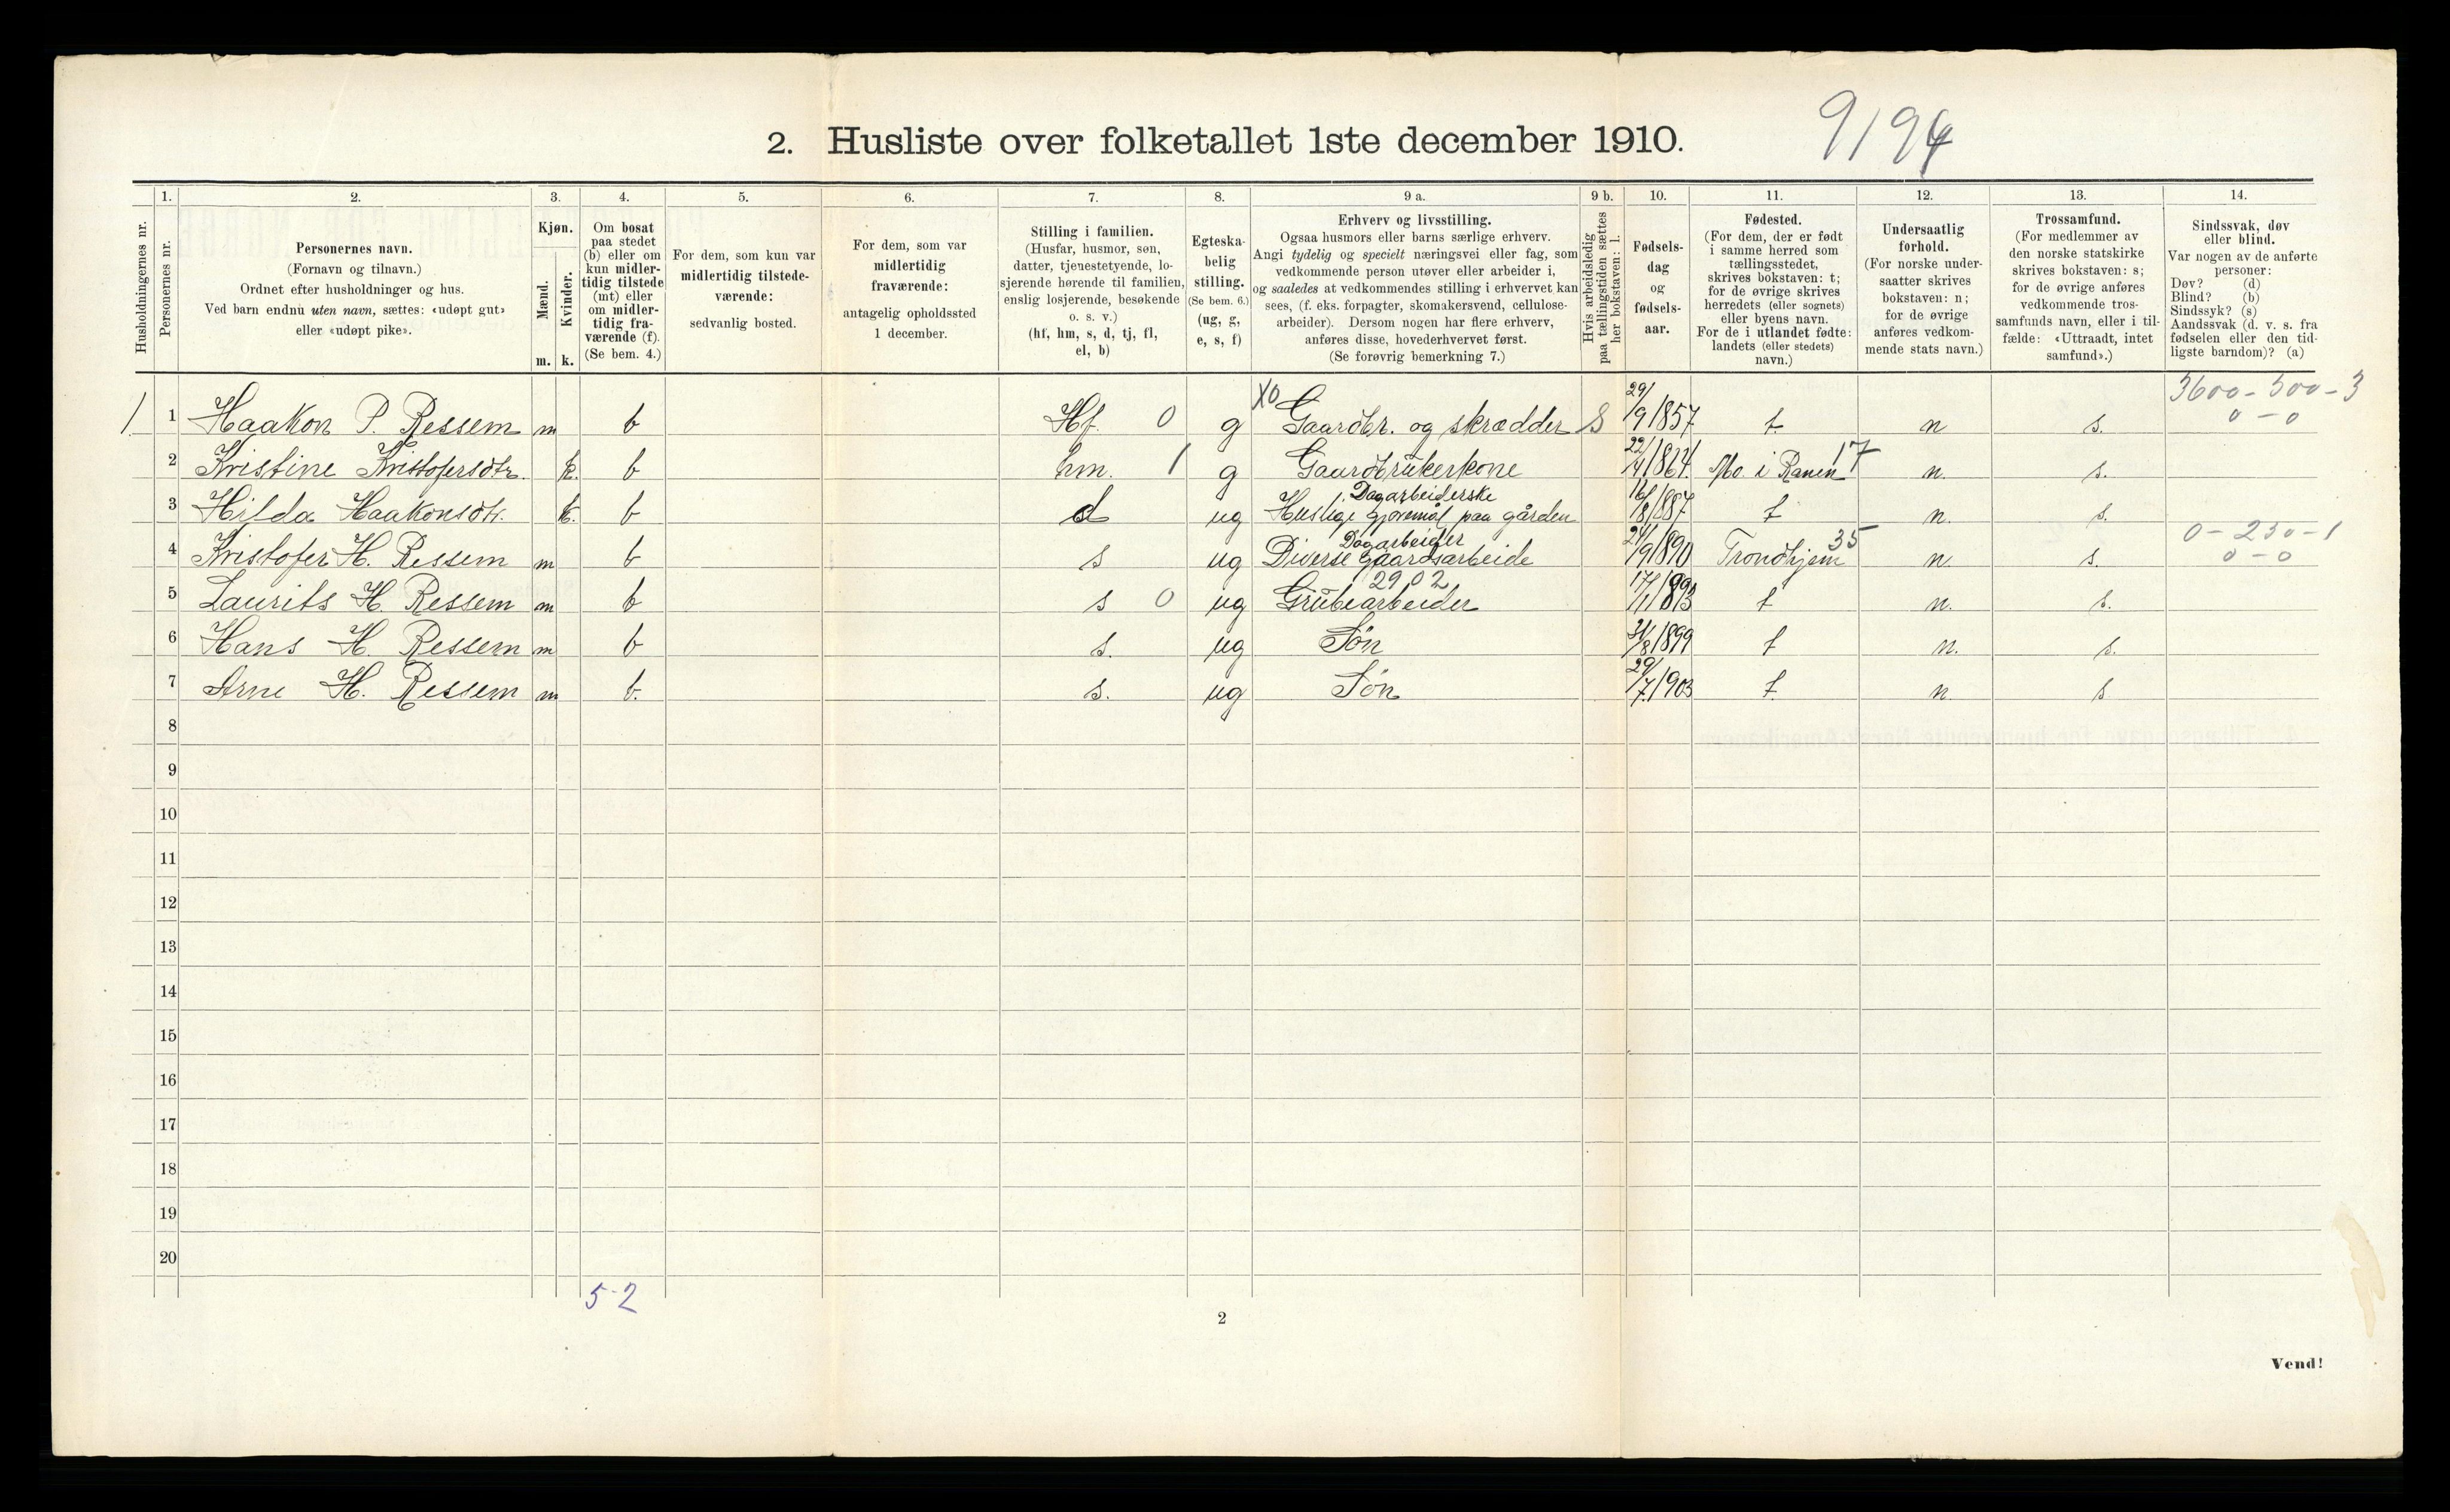 9194
2. Husliste over folketallet 1ste december 1910.
1. 2. 3. 4. 5. 6. 7. 8. 9 a. 9 b. 10. 11. 12. 13. 14.
Husholdningernes nr.
Personernes nr.
Personernes navn.
(Fornavn og tilnavn.)
Ordnet efter husholdninger og hus.
Ved barn endnu uten navn, sættes: «udøpt gut»
eller «udøpt pike».
Kjøn.
Mænd.
Kvinder.
m. k.
Om bosat
paa stedet
(b) eller om
kun midler-
tidig tilstede
(mt) eller
om midler-
tidig fra-
værende (f).
(Se bem. 4.)
For dem, som kun var
midlertidig tilstede-
værende:
sedvanlig bosted.
For dem, som var
midlertidig
fraværende:
antagelig opholdssted
1 december.
Stilling i familien.
(Husfar, husmor, søn,
datter, tjenestetyende, lo-
sjerende hørende til familien,
enslig losjerende, besøkende
o. s. v.)
(hf, hm, s, d, tj, fl,
el, b)
Egteska-
belig
stilling.
(Se bem. 6.)
(ug, g,
e, s, f)
Erhverv og livsstilling.
Ogsaa husmors eller barns særlige erhverv.
Angi tydelig og specielt næringsvei eller fag, som
vedkommende person utøver eller arbeider i,
og saaledes at vedkommendes stilling i erhvervet kan
sees, (f. eks. forpagter, skomakersvend, cellulose-
arbeider). Dersom nogen har flere erhverv,
anføres disse, hovederhvervet først.
(Se forøvrig bemerkning 7.)
Hvis arbeidsledig
paa tællingstiden sættes
her bokstaven: l.
Fødsels-
dag
og
fødsels-
aar.
Fødested.
(For dem, der er født
i samme herred som
tællingsstedet,
skrives bokstaven: t;
for de øvrige skrives
herredets (eller sognets)
eller byens navn.
For de i utlandet fødte:
landets (eller stedets)
navn.)
Undersaatlig
forhold.
(For norske under-
saatter skrives
bokstaven: n;
for de øvrige
anføres vedkom-
mende stats navn.)
Trossamfund.
(For medlemmer av
den norske statskirke
skrives bokstaven: s;
for de øvrige anføres
vedkommende tros-
samfunds navn, eller i til-
fælde: «Uttraadt, intet
samfund».)
Sindssvak, døv
eller blind.
Var nogen av de anførte
personer:
Døv? (d)
Blind? (b)
Sindssyk? (s)
Aandssvak (d. v. s. fra
fødselen eller den tid-
ligste barndom)? (a)
X0 29/ 3600-500-3
1 1 Haakon P. Ressem m b Hf. 0 g Gaardbr. og skrædder S 9 1857 t. n s. 0-0
2 Kristine Kristofersdtr. k. b hm. 1 g Gaardbrukerkone 22/4 1864. Mo. i Ranen 17 n. s.
Dagarbeiderske
3 Hilda Haakonsdtr. k. b d ug Huslige gjøremål paa gården 16/8 1887 t n. s.
Dagarbeider 35 0-250-1
4 Kristofer H. Ressem m b s ug Diverse gaardsarbeide 24/9 1890 Trondhjem n. s. 0-0
2902
5 Laurits H. Ressem m b s 0 ug Grubearbeider 17/1 1893 t n. s.
6 Hans H. Ressem m b s. ug Søn 31/8 1899 t n. s.
7 Arne H. Ressem m b. s. ug Søn 29/7 1903 t. n. s
8
9
10
11
12
13
14
15
16
17
18
19
20
5-2
2
Vend!